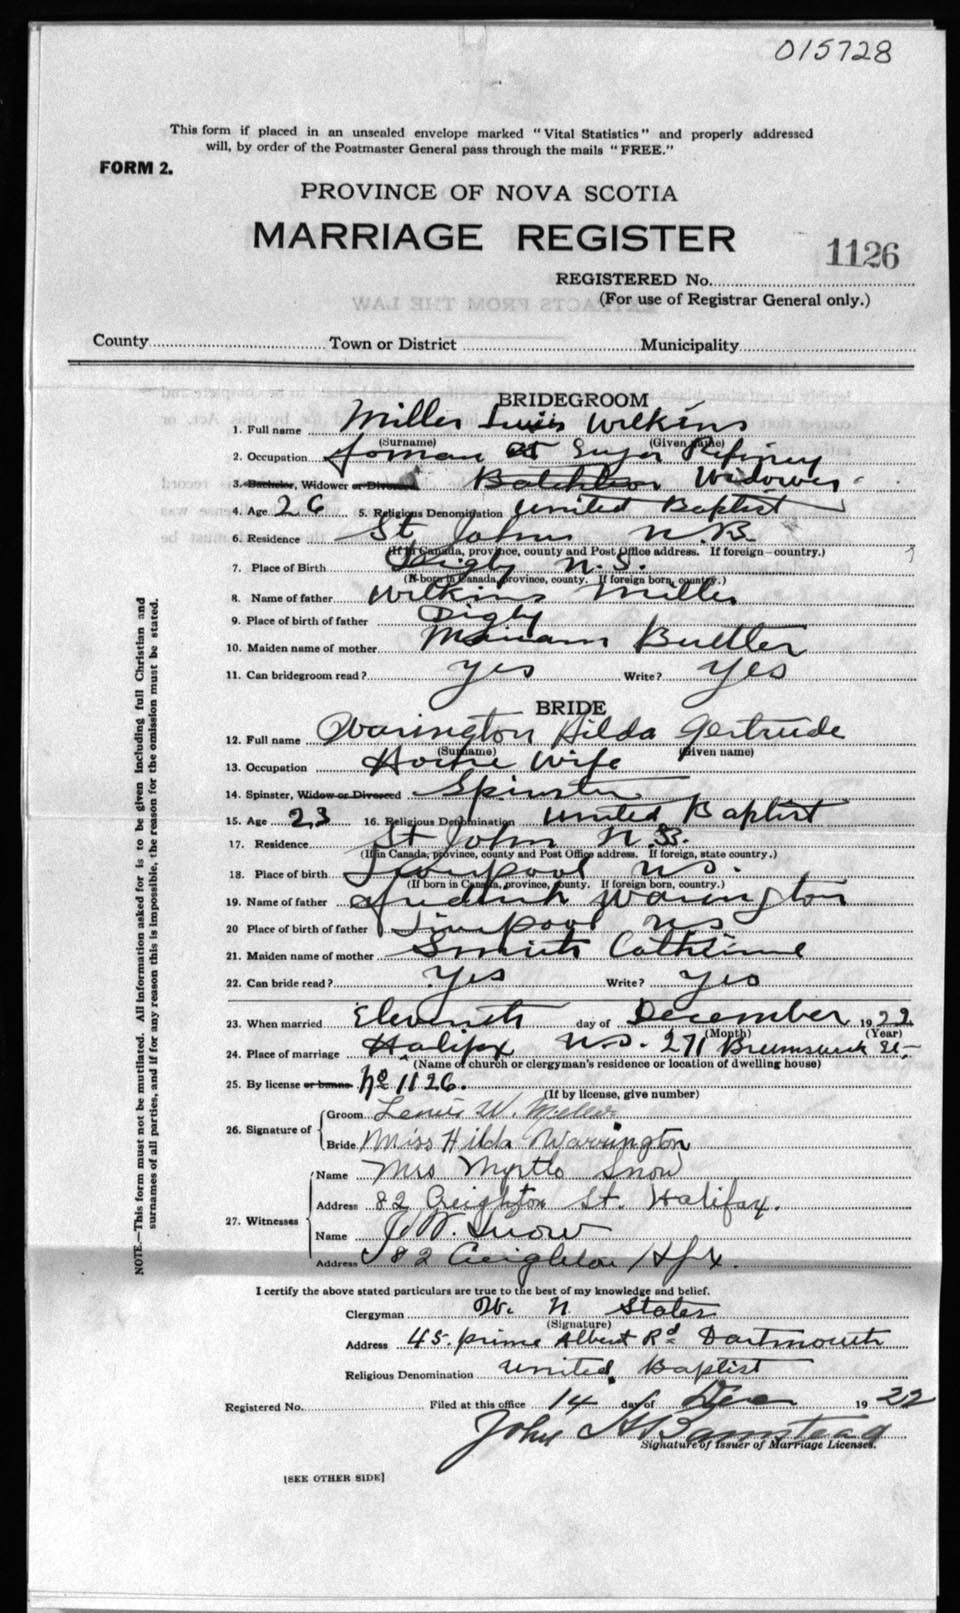 015728
This form if placed in an unsealed envelope marked "Vital Statistics" and properly addressed
will, by order of the Postmaster General pass through the mails "FREE."
FORM 2.
PROVINCE OF NOVA SCOTIA
MARRIAGE REGISTER
1126
REGISTERED No.
(For use of Registrar General only.)
EXTRACTS FROM THE LAW
County Town or District Municipality
BRIDEGROOM
1. Full name Miller Wilkins
(Surname) (Given name)
2. Occupation at Refinery
3. Bachelor, Widower or Divorced Batchleor Widower
4. Age 26 5. Religious Denomination United Baptist
6. Residence St Johns N.B.
(If in Canada, province, county and Post Office address. If foreign—country.)
7. Place of Birth Digby N.S.
(If born in Canada, province, county. If foreign born, country.)
8. Name of father Wilkins Miller
9. Place of birth of father Digby
10. Maiden name of mother Buttler
11. Can bridegroom read? yes Write? yes
BRIDE
12. Full name Warington Hilda Gertrude
(Surname) (Given name)
13. Occupation House Wife
14. Spinster, Widow or Divorced Spinster
15. Age 23 16. Religious Denomination United Baptist
17. Residence St John N.B.
(If in Canada, province, county and Post Office address. If foreign, state country.)
18. Place of birth Liverpool N.S.
(If born in Canada, province, county. If foreign born, country.)
19. Name of father Fredrick Warington
20 Place of birth of father Liverpool N S
21. Maiden name of mother Smith Catherine
22. Can bride read? Yes Write? Yes
23. When married Eleventh day of December 1922
(Month) (Year)
24. Place of marriage Halifax N.S. 271 Brunswick St.
(Name of church or clergyman's residence or location of dwelling house)
25. By license or banns No 1126.
(If by license, give number)
26. Signature of Groom W.
Bride Miss Hilda Warrington
27. Witnesses Name Mrs Snow
Address 82 Creighton St. Halifax.
Name W. Snow
Address 82 Creighton Hfx.
I certify the above stated particulars are true to the best of my knowledge and belief.
Clergyman W. N. States
(Signature)
Address 45. Prince Albert Rd Dartmouth
Religious Denomination United Baptist
Registered No. Filed at this office 14 day of Dec 1922
John
Signature of Issuer of Marriage Licenses.
[SEE OTHER SIDE]
NOTE.—This form must not be mutilated. All information asked for is to be given including full Christian and
surnames of all parties, and if for any reason this is impossible, the reason for the omission must be stated.